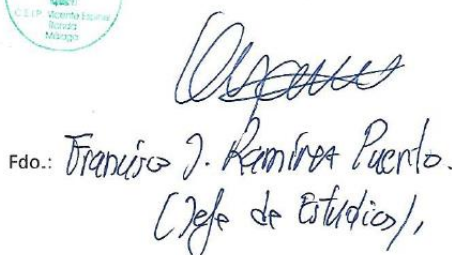 C.E.I.P. Vicente Espinel
Ronda
Málaga
Fdo.: Francisco J. Ramírez Puerto.
(Jefe de Estudios),